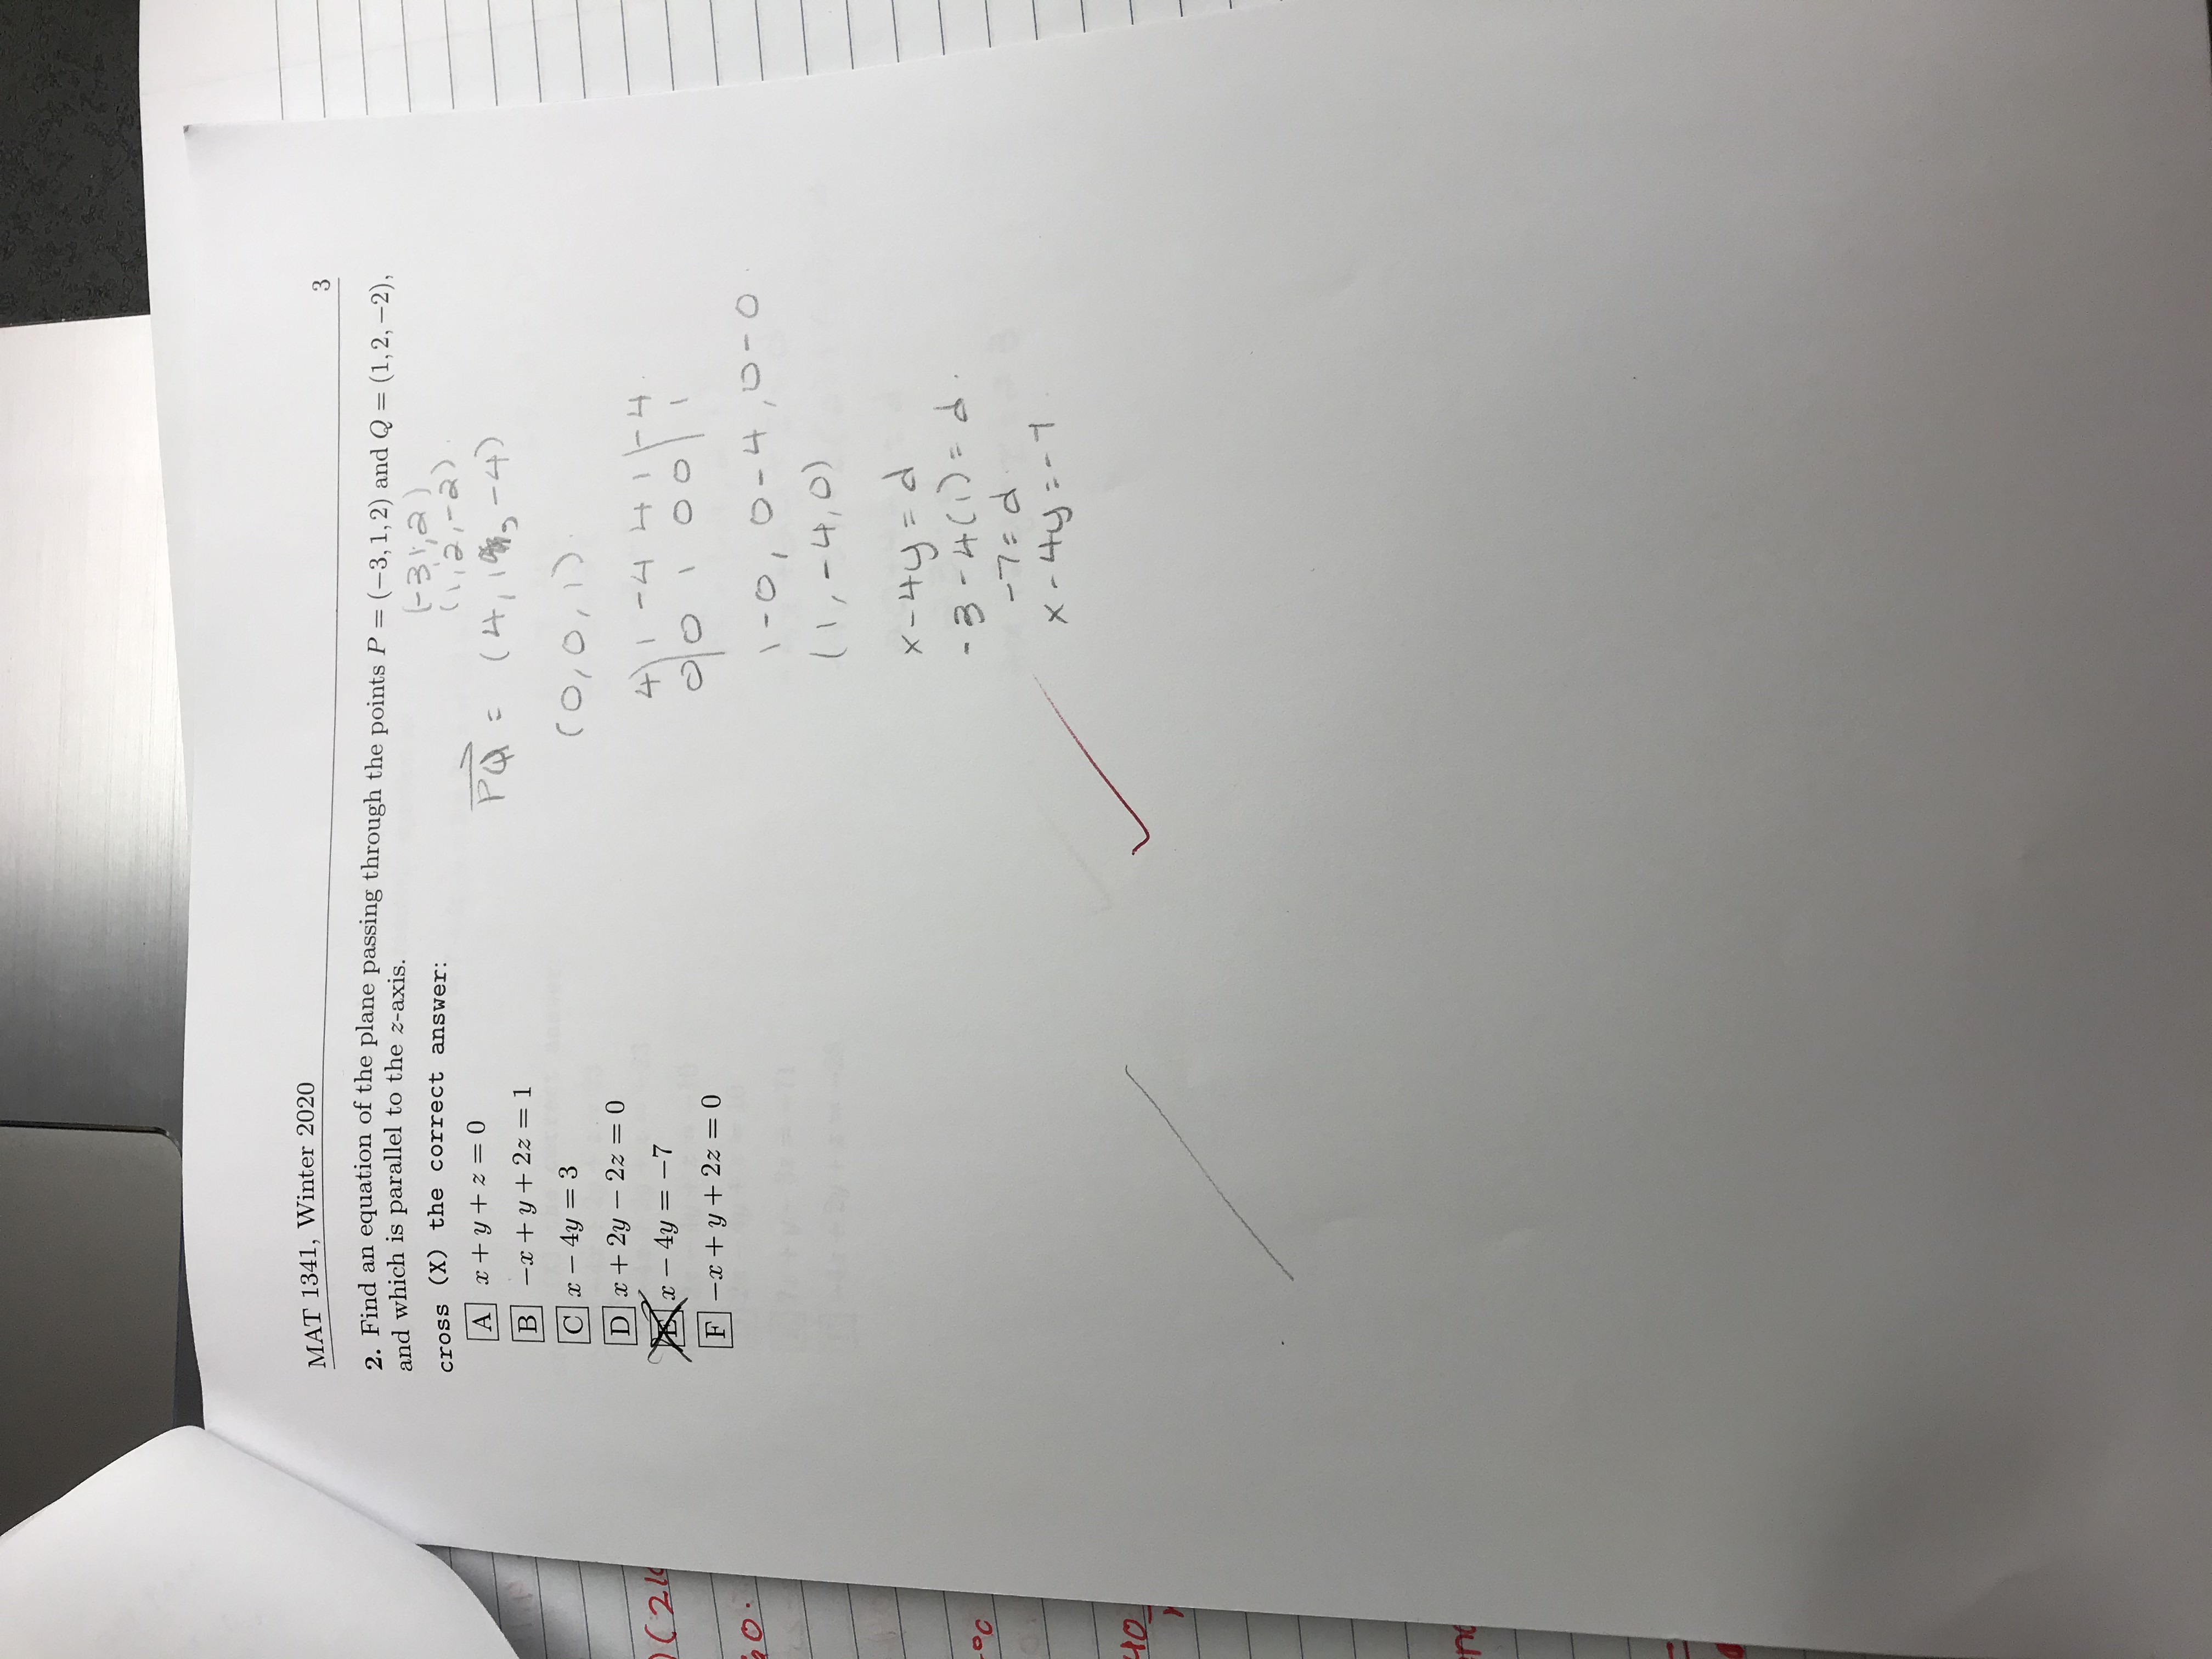 MAT 1341, Winter 2020 3
2. Find an equation of the plane passing through the points P = (−3, 1, 2) and Q = (1, 2, −2),
and which is parallel to the z-axis.
cross (X) the correct answer:
A x + y + z = 0
B −x + y + 2z = 1
C x − 4y = 3
D x + 2y − 2z = 0
E x − 4y = −7
F −x + y + 2z = 0
(-3,1,2)
(1,2,-2)
PQ = (4,1, -4)
(0,0,1)
4) 1 -4 4 1 |-4
0|0 1 0 0| 1
1-0, 0-4, 0-0
(1,-4,0)
x-4y=d
-3-4(1)=d.
-7=d
x-4y=-7
)(21
40
°C